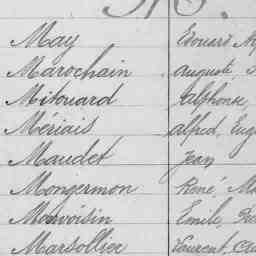 May Edouard
Marochain auguste,
Mitouard Alphonse,
Mériais alfred,
Maudet Jean
Mongermon René,
Monvoisin Emile,
Marsollier Laurent,